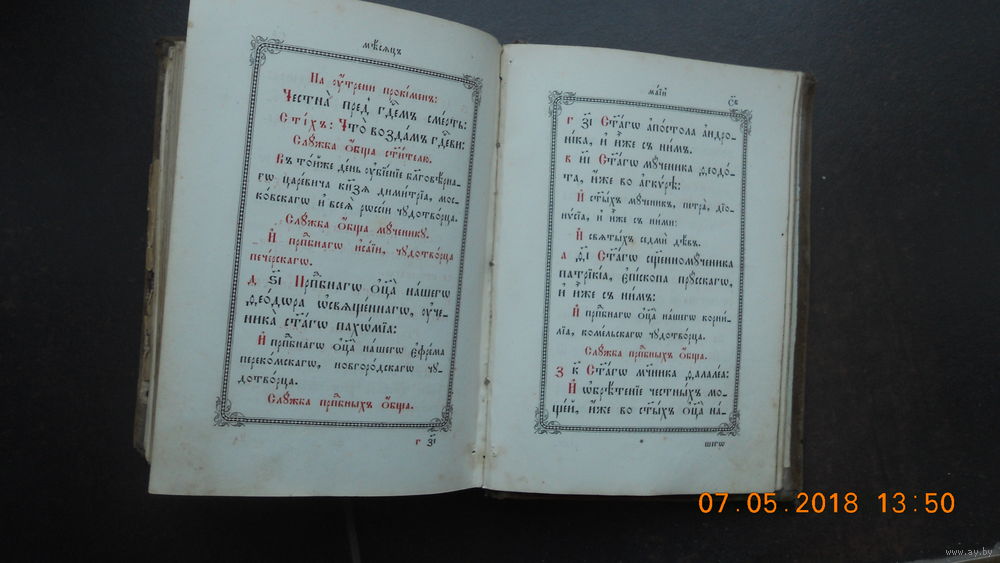 мѣ́сяцъ
На ᲂу҆́трени прокі́менъ:
Честна̀ пред̾ гд҇емъ сме́рть:
Сті́хъ: Что̀ возда́мъ гд҇еви:
Слꙋ́жба ѻ҆́бща ст҃и́телю.
Въ то́йже де́нь ᲂу҆бїе́нїе бл҃гове́рна-
гѡ царе́вича кн҃зя дими́трїа, мос-
ко́вскагѡ и҆ всея̀ рѡссі́и чꙋдотво́рца.
Слꙋ́жба ѻ҆́бща мч҃нику.
И҆ прпⷣбнагѡ и҆са́їи, чꙋдотво́рца
пече́рскагѡ.
д ѕ҃і Прпⷣбнагѡ ѻ҆ц҃а̀ на́шегѡ
ѳео́дѡра ѡ҆свѧще́ннагѡ, ᲂу҆че-
ника̀ ст҃а́гѡ пахо́мїа:
И҆ прпⷣбнагѡ ѻ҆ц҃а̀ на́шегѡ е҆фре́ма
переко́мскагѡ, новгоро́дскагѡ чꙋ-
дотво́рца.
Слꙋ́жба прпⷣбныхъ ѻ҆́бща.
г з҃і
ма́їй
с҃в
г з҃і Ст҃а́гѡ а҆по́стола а҆ндро-
ни́ка, и҆ и҆́же съ ни́мъ.
в и҃і Ст҃а́гѡ мꙋ́ченика ѳеодо́-
та, и҆́же во а҆гкѵ́рѣ:
И҆ ст҃ы́хъ мꙋ́ченикъ, петра̀, дїо-
нѵ́сїа, и҆ и҆́же съ ни́ми:
И҆ святы́хъ седми́ дѣ́въ.
а ѳ҃і Ст҃а́гѡ сщ҃енномꙋ́ченика
патрикі́а, є҆пі́скопа прꙋ́сскагѡ,
и҆ и҆́же съ ни́мъ:
И҆ прпⷣбнагѡ ѻ҆ц҃а̀ на́шегѡ корни́-
лїа, коме́льскагѡ чꙋдотво́рца.
Слꙋ́жба прпⷣбныхъ ѻ҆́бща.
з к҃ Ст҃а́гѡ мч҃ника ѳалале́а:
И҆ ѡ҆брѣ́тенїе честны́хъ мо-
ще́й, и҆́же во ст҃ы́хъ ѻ҆ц҃а̀ на́-
шегѡ
07.05.2018 13:50
www.ay.by